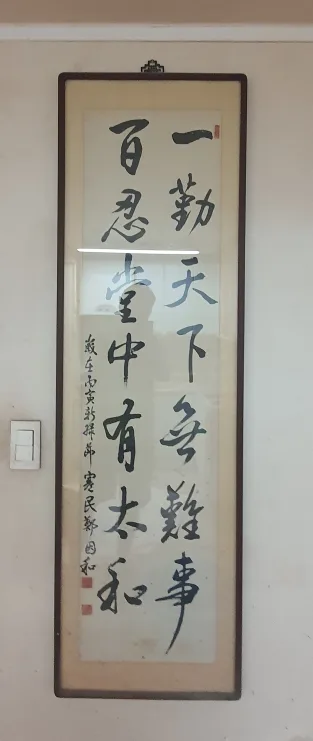 一勤天下無難事
百忍堂中有太和
歲在丙寅新 節 民鄭 和